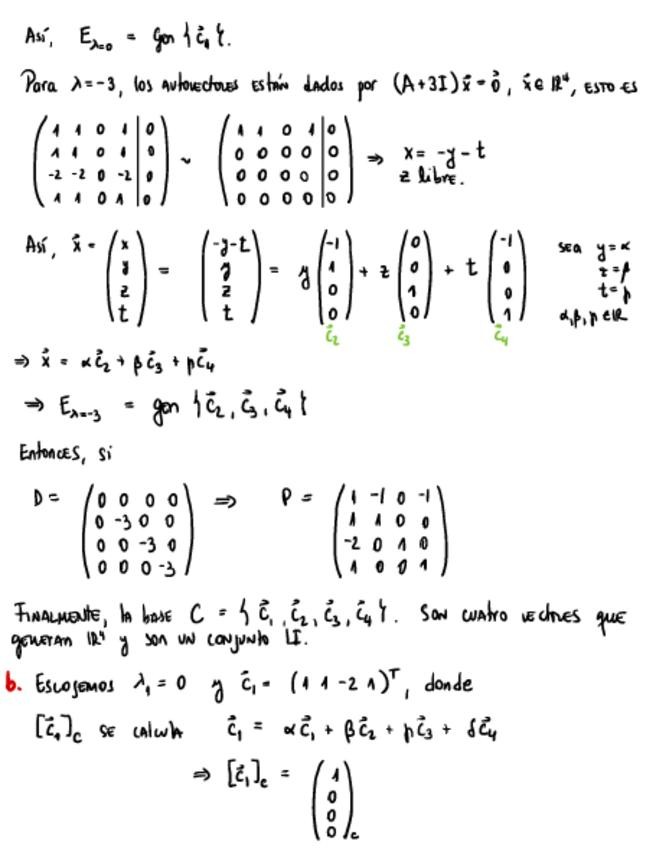 Así, E_{λ=0} = gen {c⃗₁}.
Para λ=-3, los autovectores están dados por (A+3I)x⃗ = 0⃗, x⃗ ∈ ℝ⁴, ESTO ES
(1 1 0 1 | 0) (1 1 0 1 | 0)
(1 1 0 1 | 0) ~ (0 0 0 0 | 0) ⇒ x = -y - t
(-2 -2 0 -2 | 0) (0 0 0 0 | 0) z libre.
(1 1 0 1 | 0) (0 0 0 0 | 0)
Así, x⃗ = (x y z t) = (-y-t y z t) = y (-1 1 0 0) + z (0 0 1 0) + t (-1 0 0 1) SEA y=α
z=β
t=ρ
α,β,ρ ∈ ℝ
c⃗₂ c⃗₃ c⃗₄
⇒ x⃗ = αc⃗₂ + βc⃗₃ + ρc⃗₄
⇒ E_{λ=-3} = gen {c⃗₂, c⃗₃, c⃗₄}
Entonces, si
D = (0 0 0 0) ⇒ P = (1 -1 0 -1)
(0 -3 0 0) (1 1 0 0)
(0 0 -3 0) (-2 0 1 0)
(0 0 0 -3) (1 0 0 1)
FINALMENTE, la base C = {c⃗₁, c⃗₂, c⃗₃, c⃗₄}. SON CUATRO VECTORES que
generan ℝ⁴ y SON UN CONJUNTO LI.
b. ESCOGEMOS λ₁ = 0 y c⃗₁ = (1 1 -2 1)ᵀ, donde
[c⃗₁]_C SE CALCULA c⃗₁ = αc⃗₁ + βc⃗₂ + ρc⃗₃ + δc⃗₄
⇒ [c⃗₁]_C = (1 0 0 0)_C